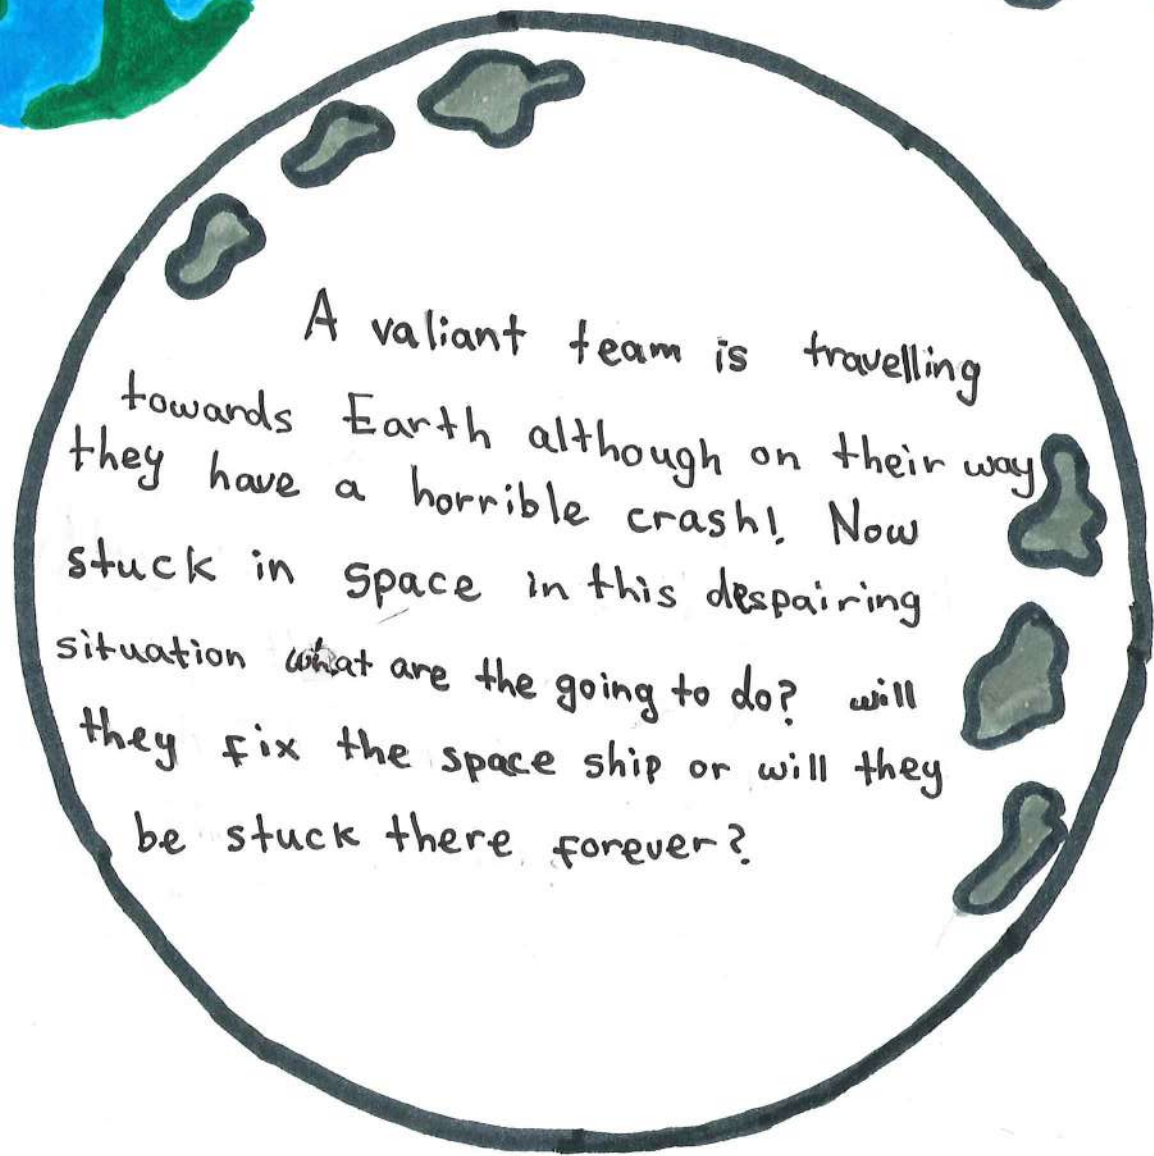 A valiant team is travelling
towards Earth although on their way
they have a horrible crash! Now
stuck in space in this despairing
situation what are the going to do? will
they fix the space ship or will they
be stuck there forever?